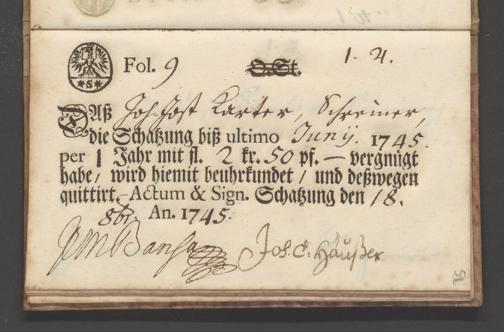 *S*
Fol. 9 O.St. 1-4.
Daß Joh. Jost Karter, Schreiner,
die Schatzung biß ultimo Junÿ. 1745.
per 1 Jahr mit fl. 2 kr. 50 pf. — vergnügt
habe / wird hiemit beuhrkundet / und deßwegen
quittirt. Actum & Sign. Schatzung den 18.
8br. An. 1745.
JM Bansa Joh. C. Häußer